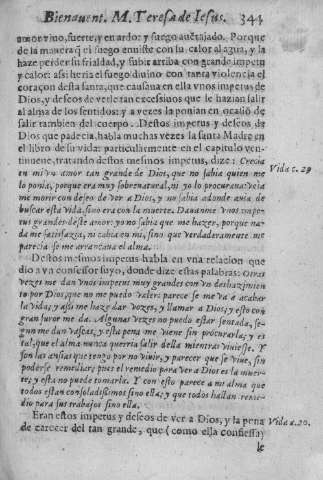 Bienauent. M. Teresa de Iesus. 341
amor viuo, fuerte, y en ardor: y fuego auentajado. Porque
de la manera q̃ el fuego enuiste con su calor al agua, y la
haze perder su frialdad, y subir arriba con grande impetu
y calor: assi heria el fuego diuino con tanta violencia el
coraçon desta santa, que causaua en ella vnos impetus de
Dios, y deseos de verle tan excessiuos que le hazian salir
al alma de los sentidos: y a vezes la ponian en ocasiõ de
salir tambien del cuerpo. Destos impetus y deseos de
Dios que padecia, habla muchas vezes la santa Madre en
el libro de su vida: particularmente en el capitulo vein-
tinueue, tratando destos mesmos impetus, dize: Crecia
en mi vn amor tan grande de Dios, que no sabia quien me
Vida c. 29
lo ponia, porque era muy sobrenatural, ni yo lo procuraua: veia
me morir con deseo de ver a Dios, y no sabia adonde auia de
buscar esta vida, sino era con la muerte. Dauanme vnos impe-
tus grandes deste amor: yo no sabia que me hazer, porque na-
da me satisfazia, ni cabia en mi, sino que verdaderamente me
parecia se me arrancaua el alma.
Destos mesmos impetus habla en vna relacion que
dio a vn confessor suyo, donde dize estas palabras: Otras
vezes me dan vnos impetus muy grandes con vn deshazimien-
to por Dios, que no me puedo valer: parece se me va a acabar
la vida; y assi me haze dar vozes, y llamar a Dios; y esto con
gran furor me da. Algunas vezes no puedo estar sentada, se-
gun me dan vascas, y esta pena me viene sin procurarla; y es
tal, que el alma nunca querria salir della mientras viuiesse. Y
son las ansias que tengo por no viuir, y parecer que se viue, sin
poderse remediar; pues el remedio para ver a Dios es la muer-
te; y esta no puede tomarla. Y con esto parece a mi alma que
todos estan consoladissimos sino ella; y que todos hallan reme-
dio para sus trabajos sino ella.
Eran estos impetus y deseos de ver a Dios, y la pena
Vida c. 20.
de carecer del tan grande, que (como ella confiessa)
le